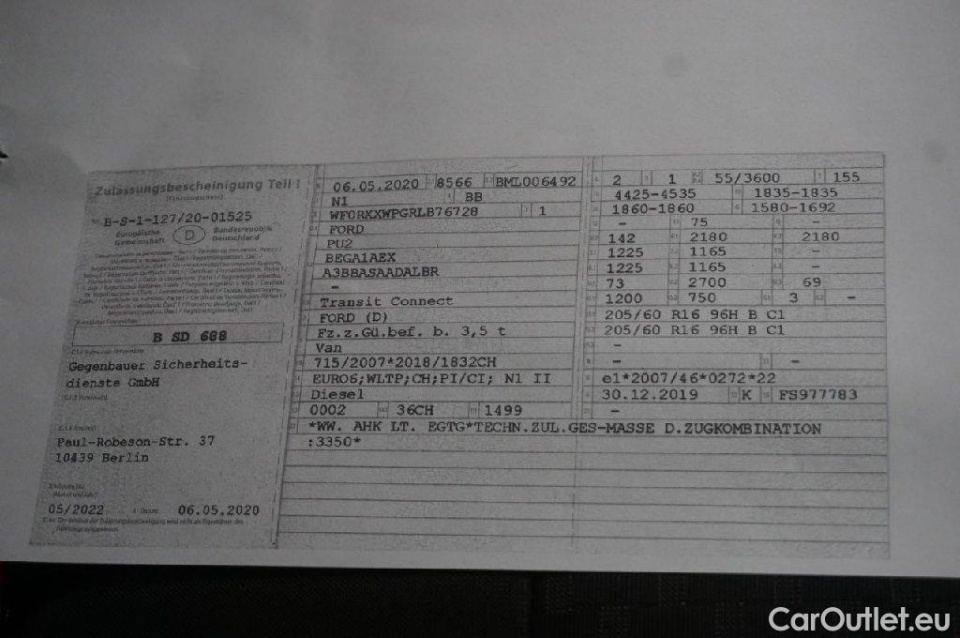 Zulassungsbescheinigung Teil I
B-S-1-127/20-01525
Europäische
Gemeinschaft
D
Bundesrepublik
Deutschland
B SD 688
Gegenbauer Sicherheits-
dienste GmbH
Paul-Robeson-Str. 37
10439 Berlin
05/2022 06.05.2020
06.05.2020 8566 BML006492
N1 BB
WF0RXXWPGRLB76728 1
FORD
PU2
BEGA1AEX
A3BBASAADALBR
-
Transit Connect
FORD (D)
Fz.z.Gü.bef. b. 3,5 t
Van
715/2007*2018/1832CH
EURO6;WLTP;CH;PI/CI; N1 II
Diesel
0002 36CH 1499
2 1 55/3600 155
4425-4535 1835-1835
1860-1860 1580-1692
- 75 -
142 2180 2180
1225 1165 -
1225 1165 -
73 2700 69
1200 750 3 -
205/60 R16 96H B C1
205/60 R16 96H B C1
-
- -
e1*2007/46*0272*22
30.12.2019 K FS977783
-
*WW. AHK LT. EGTG*TECHN.ZUL.GES-MASSE D.ZUGKOMBINATION
:3350*
CarOutlet.eu